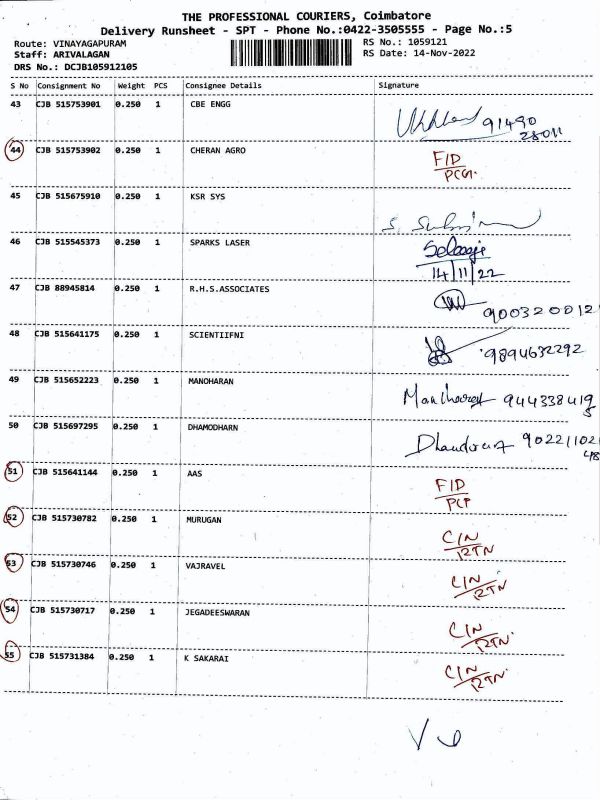 THE PROFESSIONAL COURIERS, Coimbatore
Delivery Runsheet - SPT - Phone No.:0422-3505555 - Page No.:5
Route: VINAYAGAPURAM RS No.: 1059121
Staff: ARIVALAGAN RS Date: 14-Nov-2022
DRS No.: DCJB105912105
S No Consignment No Weight PCS Consignee Details Signature
43 CJB 515753901 0.250 1 CBE ENGG
91490
28011
44 CJB 515753902 0.250 1 CHERAN AGRO F/D
45 CJB 515675910 0.250 1 KSR SYS
46 CJB 515545373 0.250 1 SPARKS LASER
14/11/22
47 CJB 88945814 0.250 1 R.H.S.ASSOCIATES
9003200121
48 CJB 515641175 0.250 1 SCIENTIIFNI
9894632292
49 CJB 515652223 0.250 1 MANOHARAN
944338419
5
50 CJB 515697295 0.250 1 DHAMODHARN
902211021
48
51 CJB 515641144 0.250 1 AAS F/D
52 CJB 515730782 0.250 1 MURUGAN C/N
RTN
53 CJB 515730746 0.250 1 VAJRAVEL C/N
RTN
54 CJB 515730717 0.250 1 JEGADEESWARAN C/N
RTN
55 CJB 515731384 0.250 1 K SAKARAI C/N
RTN